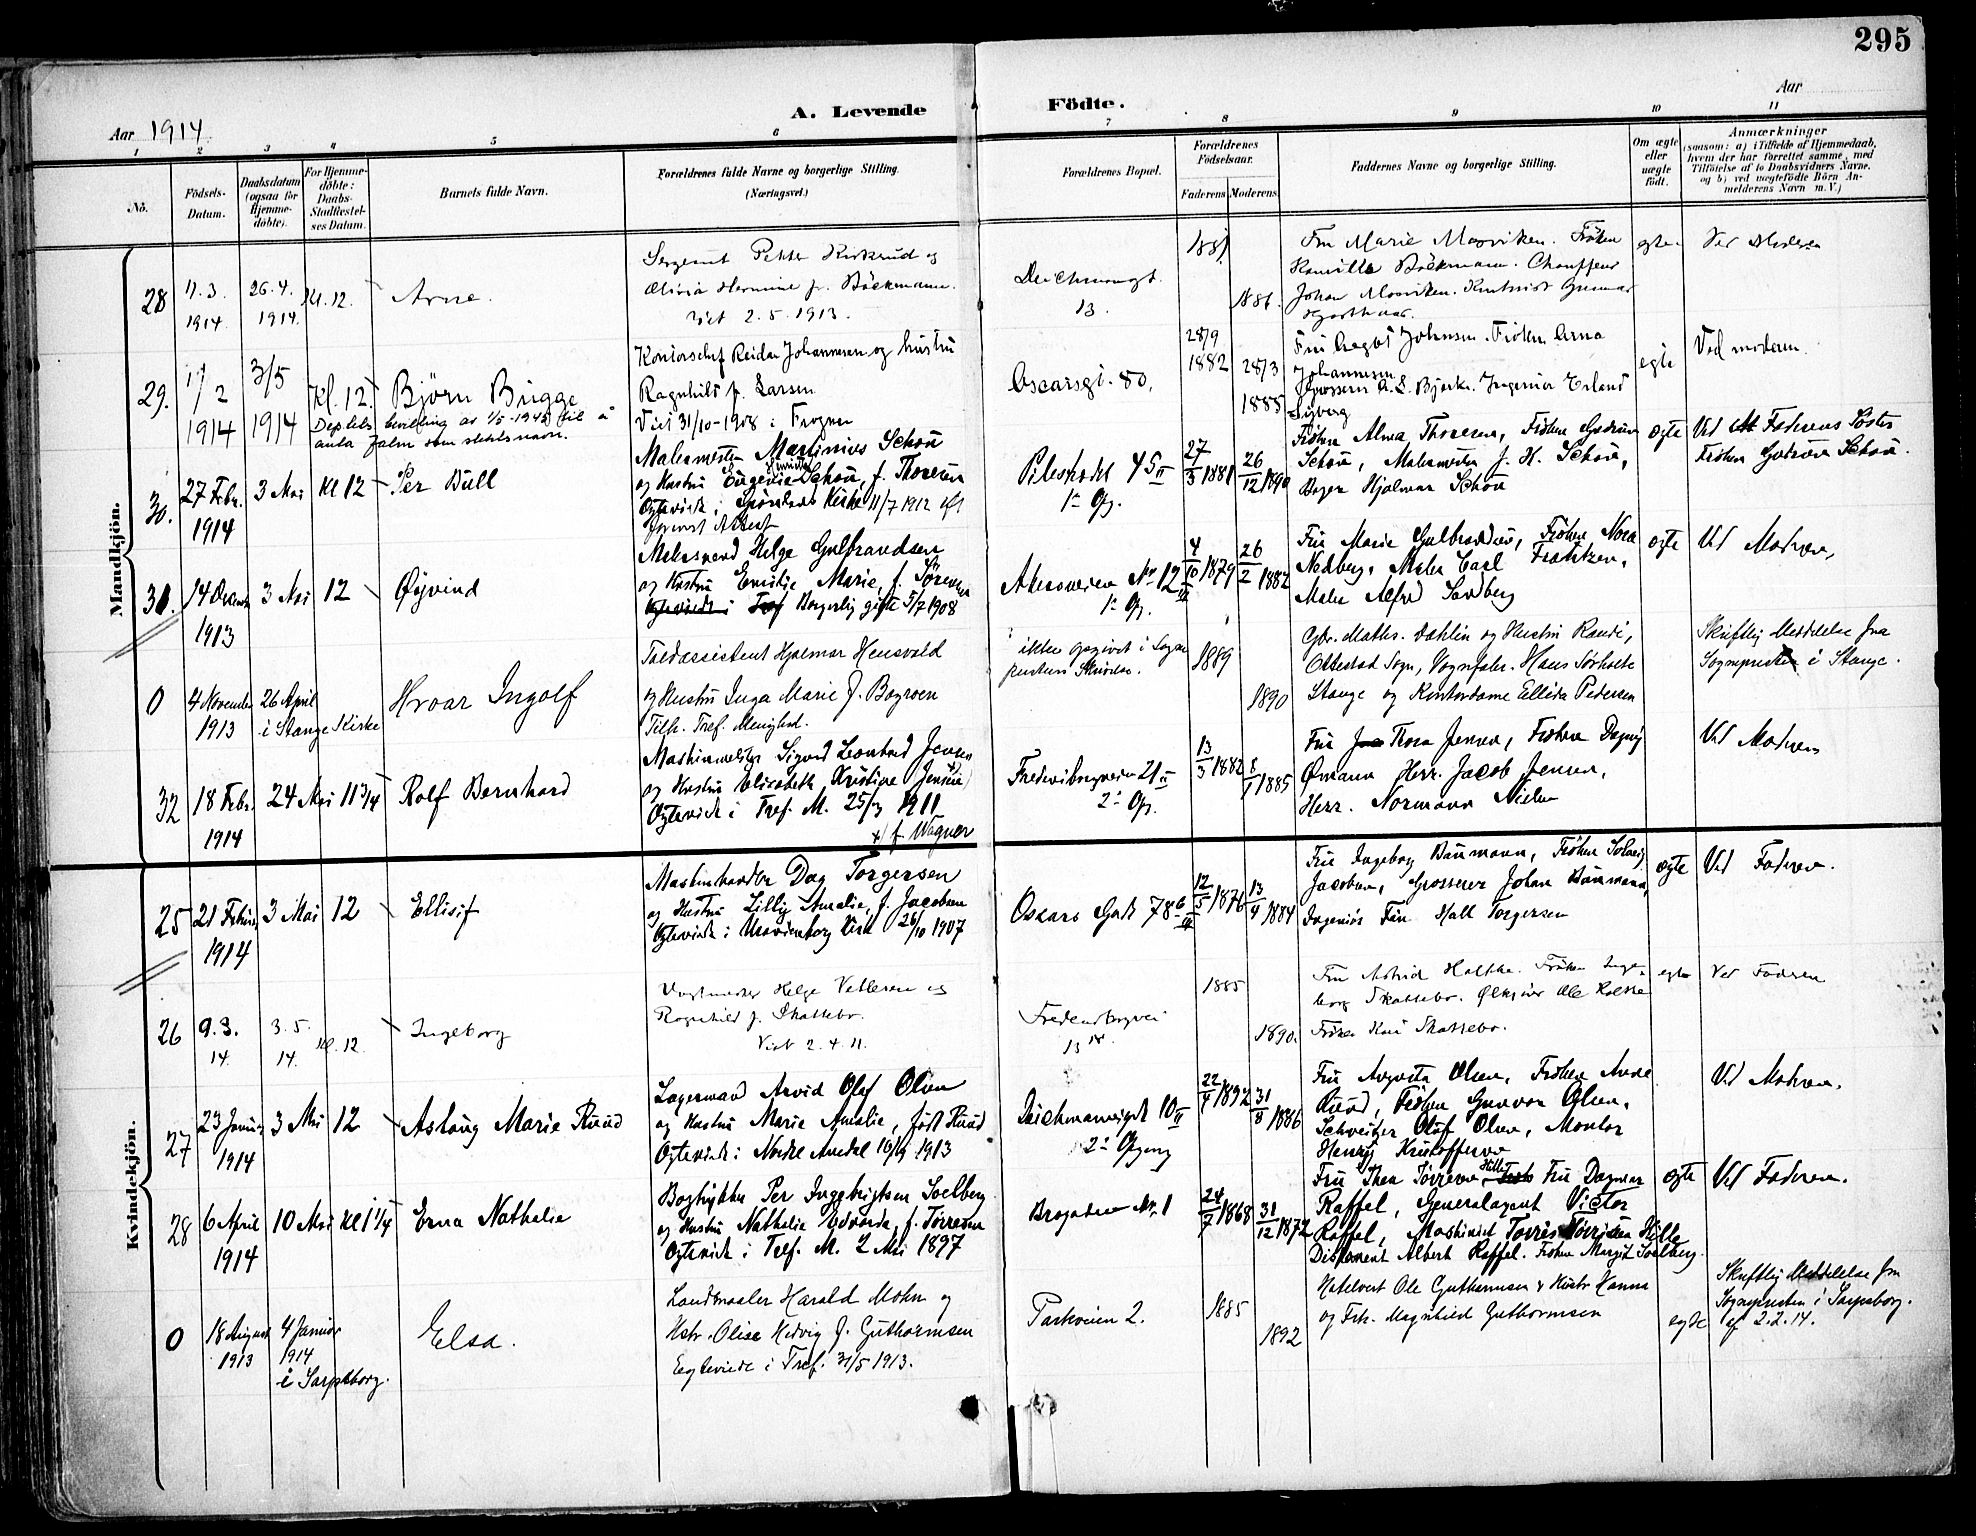 295
A. Levende Födte.
Aar 1914
Aar
1 2 3 4 5 6 7 8 9 10 11
No.
Födsels-Datum.
Daabsdatum (ogsaa for Hjemmedøbte).
For Hjemmedøbte: Daabs-Stadfæstelses Datum.
Barnets fulde Navn.
Forældrenes fulde Navne og borgerlige Stilling. (Næringsvei.)
Forældrenes Bopæl.
Forældrenes Fødselsaar.
Faderens Moderens
Faddernes Navne og borgerlige Stilling.
Om ægte eller uægte født.
Anmærkninger (saasom: a) i Tilfælde af Hjemmedaab, hvem der har forrettet samme, med Tilføielse af to Daabsvidners Navne. og b) ved uægtefødte Börn Anmelderens Navn m. V.)
Mandkjön.
28
11.3. 1914.
26.4. 1914.
Kl. 12.
Arne.
Sergeant Petter Kirkerud og
Olivia Hermine f. Böckmann.
Viet 2.5.1913.
Deichmansgt. 13.
1881
1886.
Fru Marie Mosviken. Fröken
Kamilla Böckmann. Chauffeur
Johan Mosviken. Kontorist Gunnar
egte
Ved Moderen
29.
1/2 1914
3/5 1914
Kl. 12.
Björn Brigge
bevilling av 1/5-1945 til å
anta Falm som slektsnavn.
Kontorchef Reidar Johannesen og hustru
Ragnhild f. Larsen
Viet 31/10-1908 i Frogner
Oscarsgt. 80.
28/9 1882
28/3 1885
Fru Dagot Johnsen. Fröken Arna
Johannesen
Grosserer A. L. Bjerke. Ingeniör Erland
egte
Ved moderen.
30.
27 Febr. 1914
3 Mai
Kl 12
Per Bull
Malermester Martinius Schou
og Hustru Eugenie Henriette Schou, f. Thoresen
Ogteviet i Kirke 11/7 1912
Pilestrædet 45 II
1ste Opg.
27/3 1881
26/12 1890
Fröken Alma Thoresen, Fröken Gudrun
Schou, Malermester J. H. Schou,
Bager Hjalmar Schou
ægte
Ved Faderens Søster
Fröken Gudrun Schou.
31.
14 Decemb 1913
3 Mai
12
Øyvind
Malersvend Helge Gulbrandsen
og Hustru Emilie Marie, f. Sörensen
Borgerlig gifte 5/7 1908
Akersveien No 12 III
1ste Opg.
4/10 1879
26/2 1882
Fru Marie Gulbrandsen, Fröken Nora
Nedberg, Maler Carl Frantzen,
Maler Alfred Sandberg
ægte
Ved Moderen,
0
4 November 1913
26 April
i Stange Kirke
Hroar Ingolf
Toldassistent Hjalmar Hensvold
og Hustru Inga Marie f. Bogroen
Tilh. Tref. Menighed.
ikke opgivet i Sogne
prestens Skrivelse.
1889
1890
Gbr. Maths. Dahlin og Hustru Randi,
Ottestad Sogn, Vognfabr. Hans Sörholte
Stange og Kontordame Ellida Pedersen
Skriftlig Meddelelse fra
Sognepresten i Stange.
32
18 Febr. 1914
24 Mai
11 3/4
Rolf Bernhard
Maskinmester Sigurd Leonhard Jensen
og Hustru Elisabeth Kristine Jensen x)
Ogteviet i Tref. M. 25/3 1911
x) f. Wagner
Fredensborgveien 21 II
2den Opg.
13/3 1882
8/1 1885
Fru Thora Jensen, Fröken Dagny
Ømann Herr. Jacob Jensen,
Herr. Normann Nielsen
Ved Moderen
Kvindekjön.
25
21 Febru. 1914
3 Mai
12
Ellisif
Maskinhandler Dag Torgersen
og Hustru Lilly Amalie, f. Jacobsen
Ogteviet i Uranienborg Kirke 26/10 1907
Oscars Gade 78
12/5 1876
13/4 1884
Fru Ingeborg Baumann, Fröken Solveig
Jacobsen, Grosserer Johan Baumann,
Ingeniör Finn Hall Torgersen
ægte
Ved Faderen.
26
9.3. 14.
3.5. 14.
Kl. 12.
Ingeborg
Vagtmester Helge Vetlesen og
Ragnhild f. Skattebo.
Viet 2.4.11.
Fredensborgvei
13
1885
1890.
Fru Astrid Holthe. Fröken Inge-
borg Skattebo. Ole Holthe
Fröken Kari Skattebo.
egte
Ved Faderen
27
23 Januar 1914
3 Mai
12
Aslaug Marie Ruud
Lagermand Arvid Olaf Olsen
og Hustru Marie Amalie, født Ruud
Ogteviet i Nordre Aurdal 10/9 1913
Deichmannsgt 10 II
2den Opgang
22/4 1892
31/8 1886
Fru Augusta Olsen, Fröken Anne
Ruud, Fröken Gunvor Olsen,
Schweitzer Olaf Olsen, Montør
Henry Kristoffersen
Ved Moderen.
28
6 April 1914
10 Mai
Kl 1 1/4
Erna Nathalie
Bogtrykker Per Ingebrigtsen Soelberg
og Hustru Nathalie Edvarda, f. Tørresen
Ogteviet i Tref. M. 2 Mai 1897
Brogaden No. 1
24/7 1868
31/12 1872
Fru Thea Tørresen Hille Fru Dagmar
Raffel, Generalagent Victor
Raffel, Maskinist Torris Tørrisen Hille
Disponent Albert Raffel. Fröken Margit Soelberg.
ægte
Ved Faderen.
0
18 August 1913
4 Januar 1914
i Sarpsborg.
Elsa.
Landmaaler Harald Mohn og
Hstr. Olise Hedvig f. Guthormsen
Egteviede i Tref. 31/5 1913.
Parkveien 2.
1885
1892
Hotelvert Ole Guthormsen & Hustr. Hanna
og Frk. Magnhild Guthormsen
egte
Skriftlig Meddelelse fra
Sognepresten i Sarpsborg.
af 2.2.14.